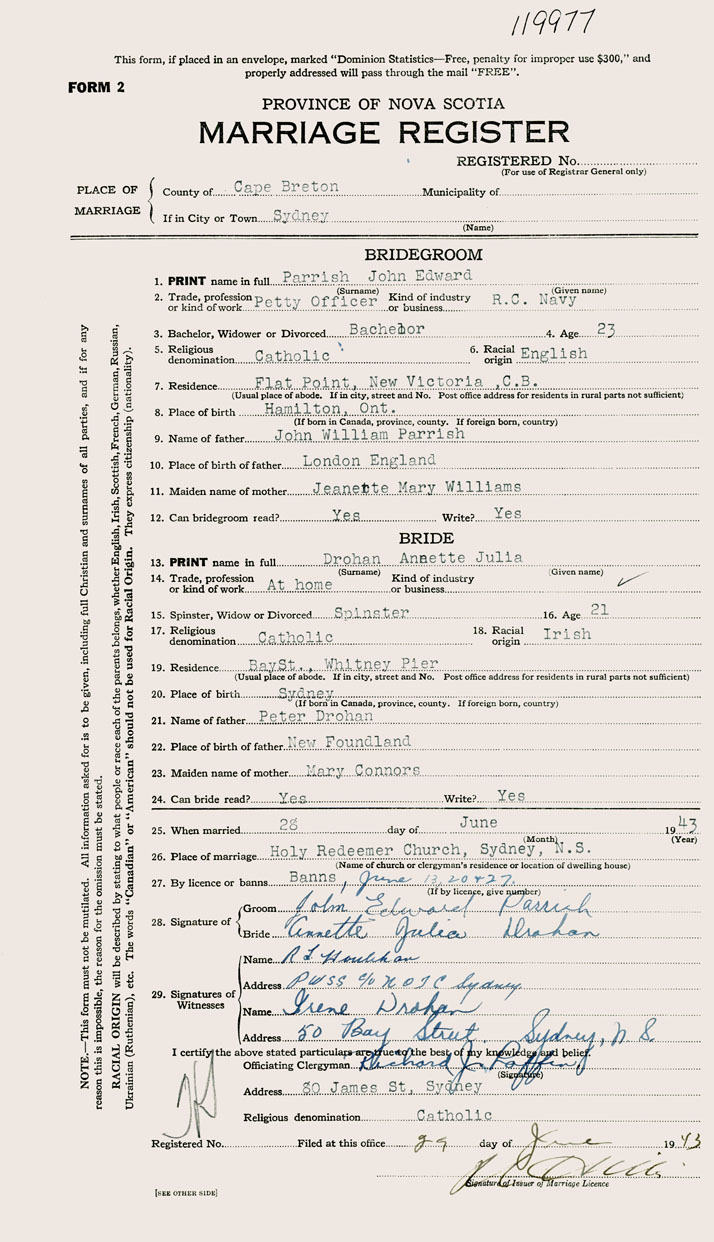 119977
This form, if placed in an envelope, marked "Dominion Statistics—Free, penalty for improper use $300," and
properly addressed will pass through the mail "FREE".
FORM 2
PROVINCE OF NOVA SCOTIA
MARRIAGE REGISTER
REGISTERED No.
(For use of Registrar General only)
PLACE OF MARRIAGE
County of Cape Breton Municipality of
If in City or Town Sydney
(Name)
BRIDEGROOM
1. PRINT name in full Parrish John Edward
(Surname) (Given name)
2. Trade, profession or kind of work Petty Officer Kind of industry or business R.C. Navy
3. Bachelor, Widower or Divorced Bachelor 4. Age 23
5. Religious denomination Catholic 6. Racial origin English
7. Residence Flat Point, New Victoria ,C.B.
(Usual place of abode. If in city, street and No. Post office address for residents in rural parts not sufficient)
8. Place of birth Hamilton, Ont.
(If born in Canada, province, county. If foreign born, country)
9. Name of father John William Parrish
10. Place of birth of father London England
11. Maiden name of mother Jeanette Mary Williams
12. Can bridegroom read? Yes Write? Yes
BRIDE
13. PRINT name in full Drohan Annette Julia
(Surname) (Given name)
14. Trade, profession or kind of work At home Kind of industry or business
15. Spinster, Widow or Divorced Spinster 16. Age 21
17. Religious denomination Catholic 18. Racial origin Irish
19. Residence BaySt., Whitney Pier
(Usual place of abode. If in city, street and No. Post office address for residents in rural parts not sufficient)
20. Place of birth Sydney
(If born in Canada, province, county. If foreign born, country)
21. Name of father Peter Drohan
22. Place of birth of father New Foundland
23. Maiden name of mother Mary Connors
24. Can bride read? Yes Write? Yes
25. When married 28 day of June 1943
(Month) (Year)
26. Place of marriage Holy Redeemer Church, Sydney, N.S.
(Name of church or clergyman's residence or location of dwelling house)
27. By licence or banns Banns, June 13, 20 & 27.
(If by licence, give number)
28. Signature of
Groom John Edward Parrish
Bride Annette Julia Drohan
29. Signatures of Witnesses
Name R L Houlihan
Address PWSS c/o NOIC Sydney
Name Irene Drohan
Address 50 Bay Street Sydney, N.S.
I certify the above stated particulars are true to the best of my knowledge and belief.
Officiating Clergyman Richard J.
(Signature)
Address 30 James St, Sydney
Religious denomination Catholic
Registered No. Filed at this office 29 day of June 1943
Signature of Issuer of Marriage Licence
[SEE OTHER SIDE]
NOTE.—This form must not be mutilated. All information asked for is to be given, including full Christian and surnames of all parties, and if for any
reason this is impossible, the reason for the omission must be stated.
RACIAL ORIGIN will be described by stating to what people or race each of the parents belongs, whether English, Irish, Scottish, French, German, Russian,
Ukrainian (Ruthenian), etc. The words "Canadian" or "American" should not be used for Racial Origin. They express citizenship (nationality).